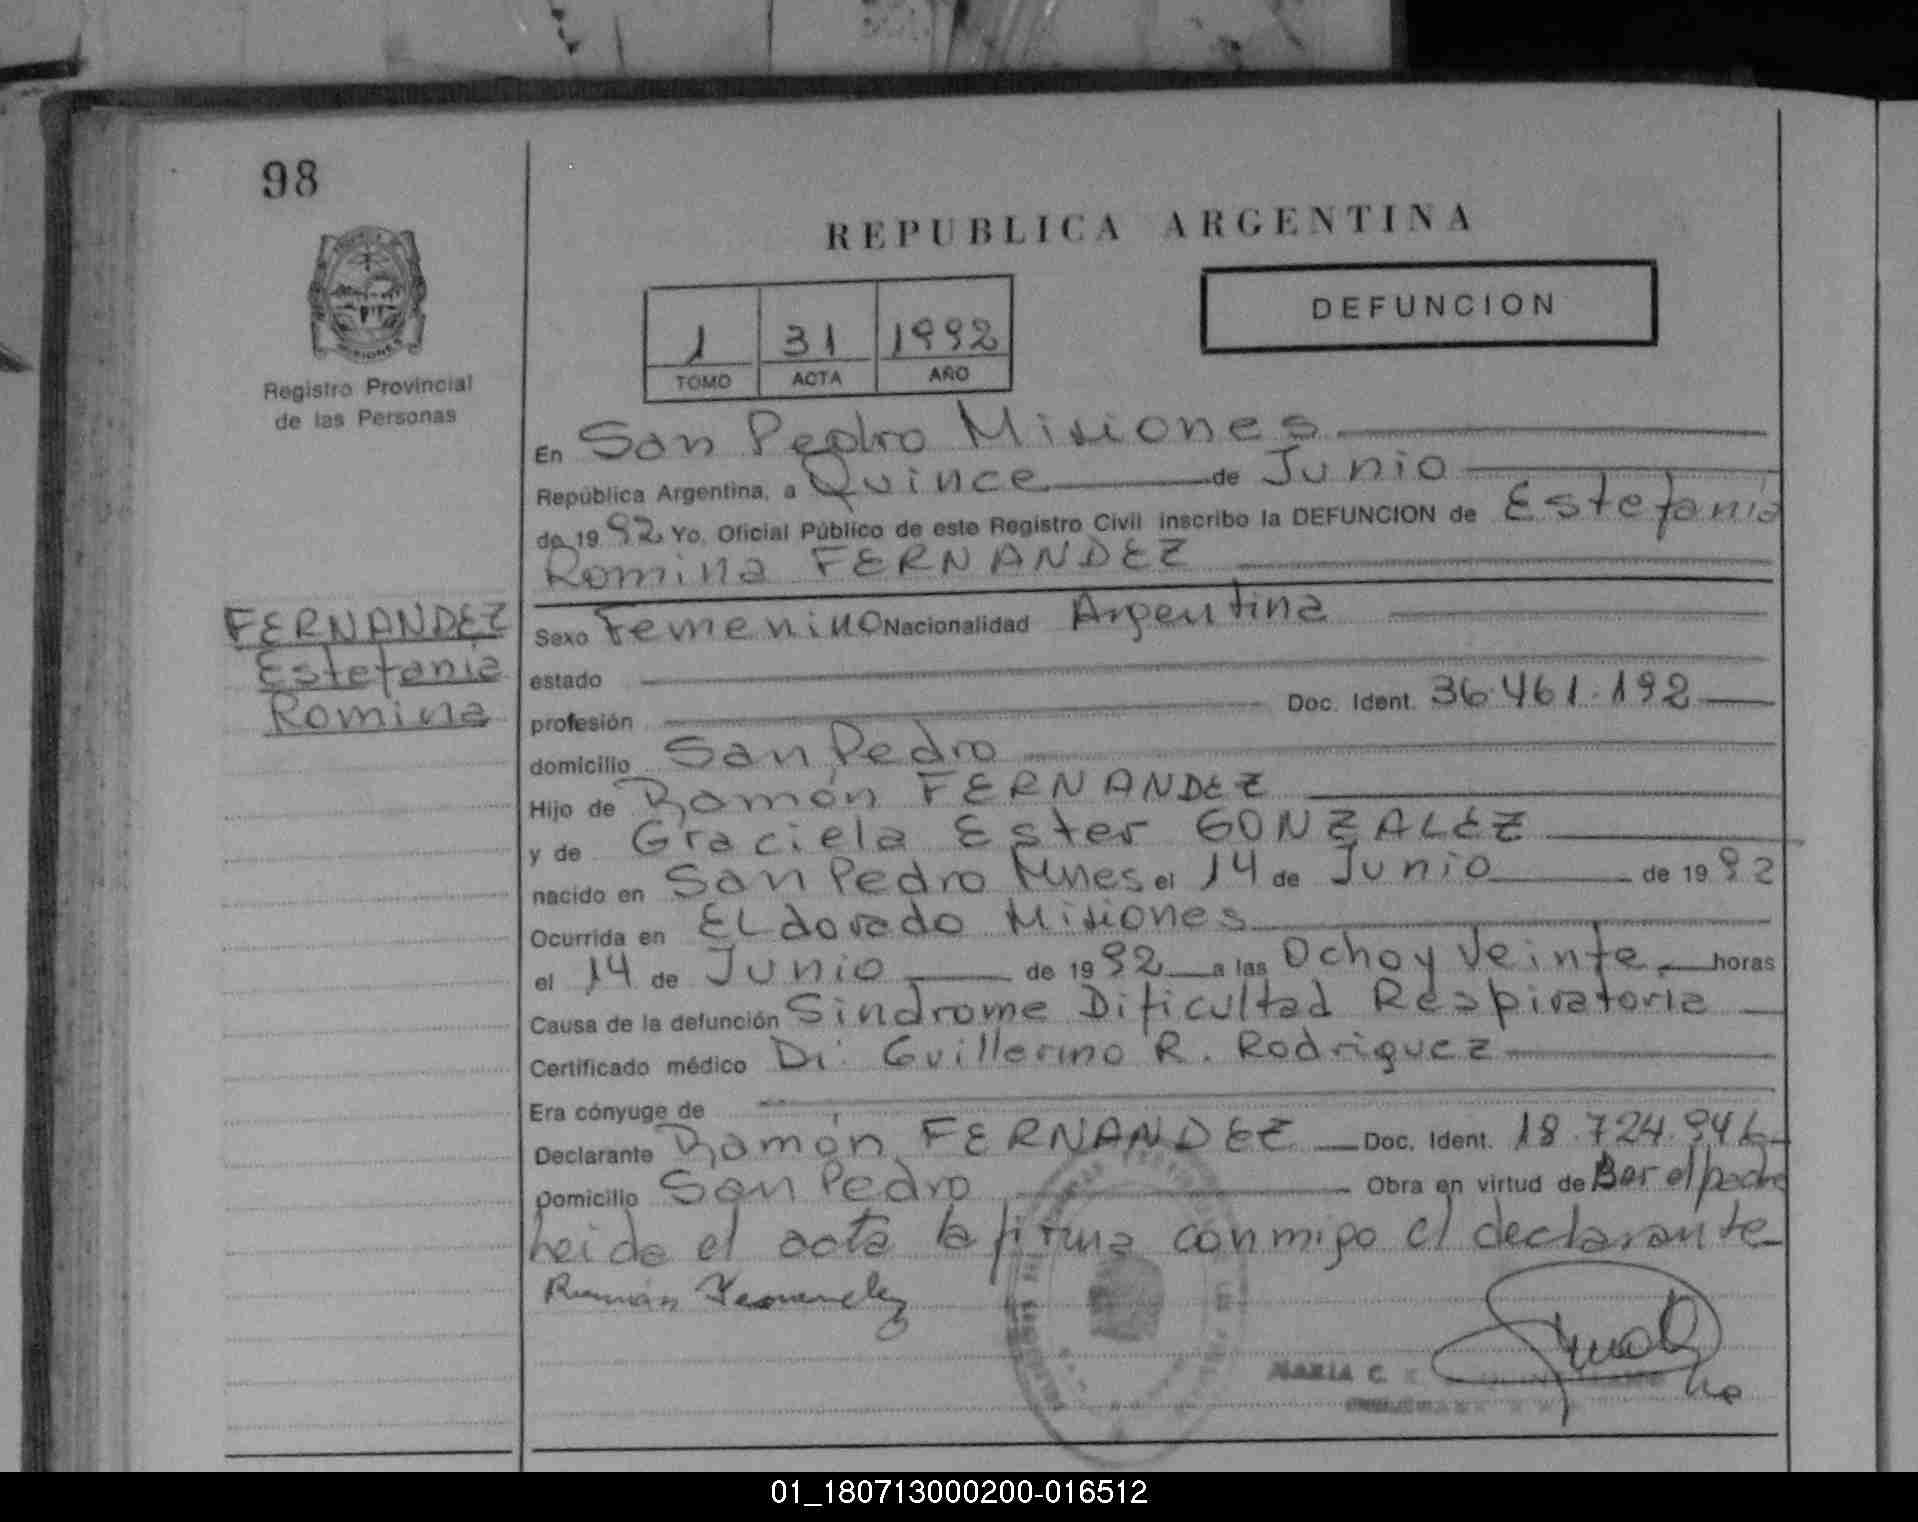 98
REPUBLICA ARGENTINA
DEFUNCION
1 31 1992
TOMO ACTA AÑO
MISIONES
Registro Provincial
de las Personas
En San Pedro Misiones
República Argentina, a Quince de Junio
de 1992 Yo, Oficial Público de este Registro Civil inscribo la DEFUNCION de Estefania
Romina FERNANDEZ
FERNANDEZ
Estefania
Romina
Sexo Femenino Nacionalidad Argentina
estado
profesión Doc. Ident. 36.461.192
domicilio San Pedro
Hijo de Ramón FERNANDEZ
y de Graciela Ester GONZALEZ
nacido en San Pedro Mnes el 14 de Junio de 1992
Ocurrida en ELdorado Misiones
el 14 de Junio de 1992 a las Ocho y Veinte horas
Causa de la defunción Sindrome Dificultad Respiratoria
Certificado médico Dr. Guillermo R. Rodriguez
Era cónyuge de
Declarante Ramón FERNANDEZ Doc. Ident. 18.724.946
Domicilio San Pedro Obra en virtud de Ser el padre
heida el acta la firma conmigo el declarante
Ramón Fernandez
MARIA C.
01_180713000200-016512